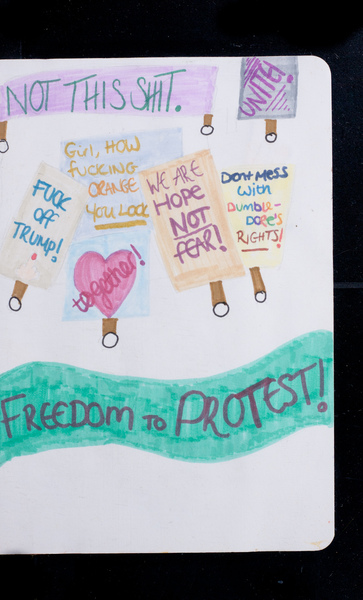 NOT THIS SHIT.
UNITY!
Girl, HOW
fUCKING
ORANGE
YOU LOOK
FUCK
OFF
TRUMP!
WE ARE
HOPE
NOT
FEAR!
DONT MESS
With
DUMBLE-
DORE'S
RIGHTS!
together!
FREEDOM TO PROTEST!